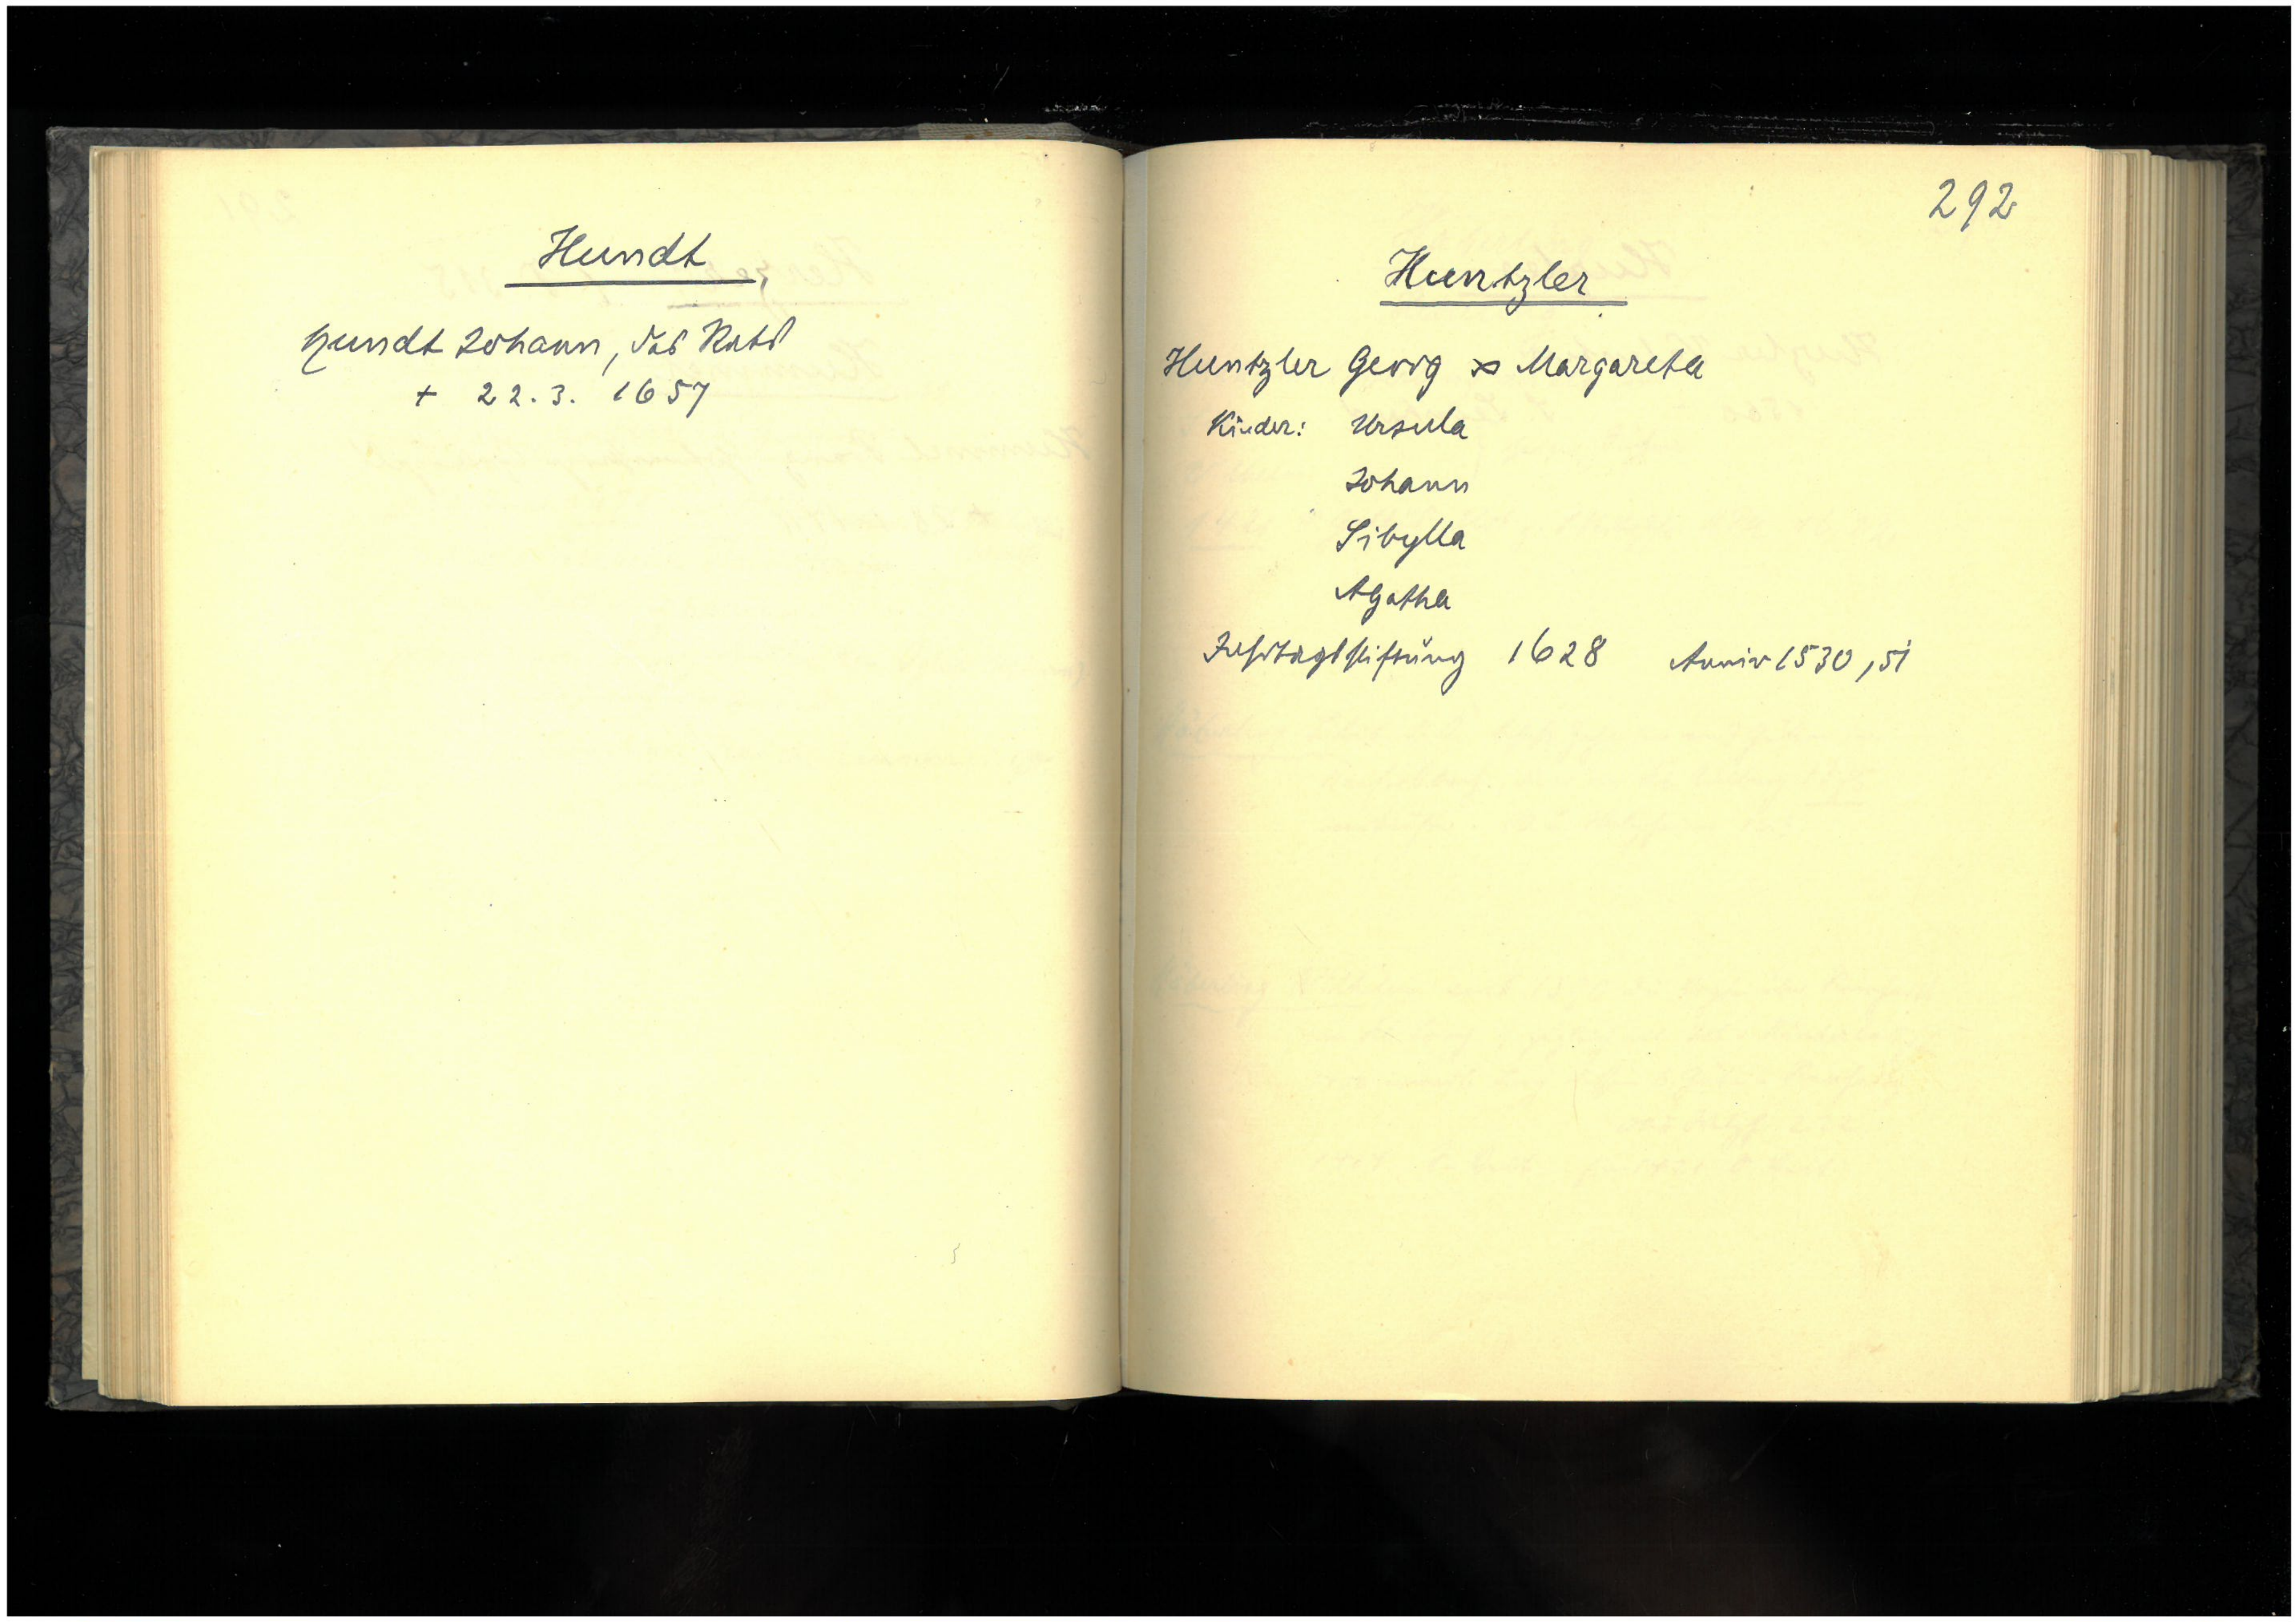 Hundt
Hundt Johann, des Rats
+ 22.3. 1657
292
Huntzler
Huntzler Georg ∞ Margareta
Kinder: Ursula
Johann
Sibylla
Agatha
Jahrtagsstiftung 1628 Anniv 1530, 51